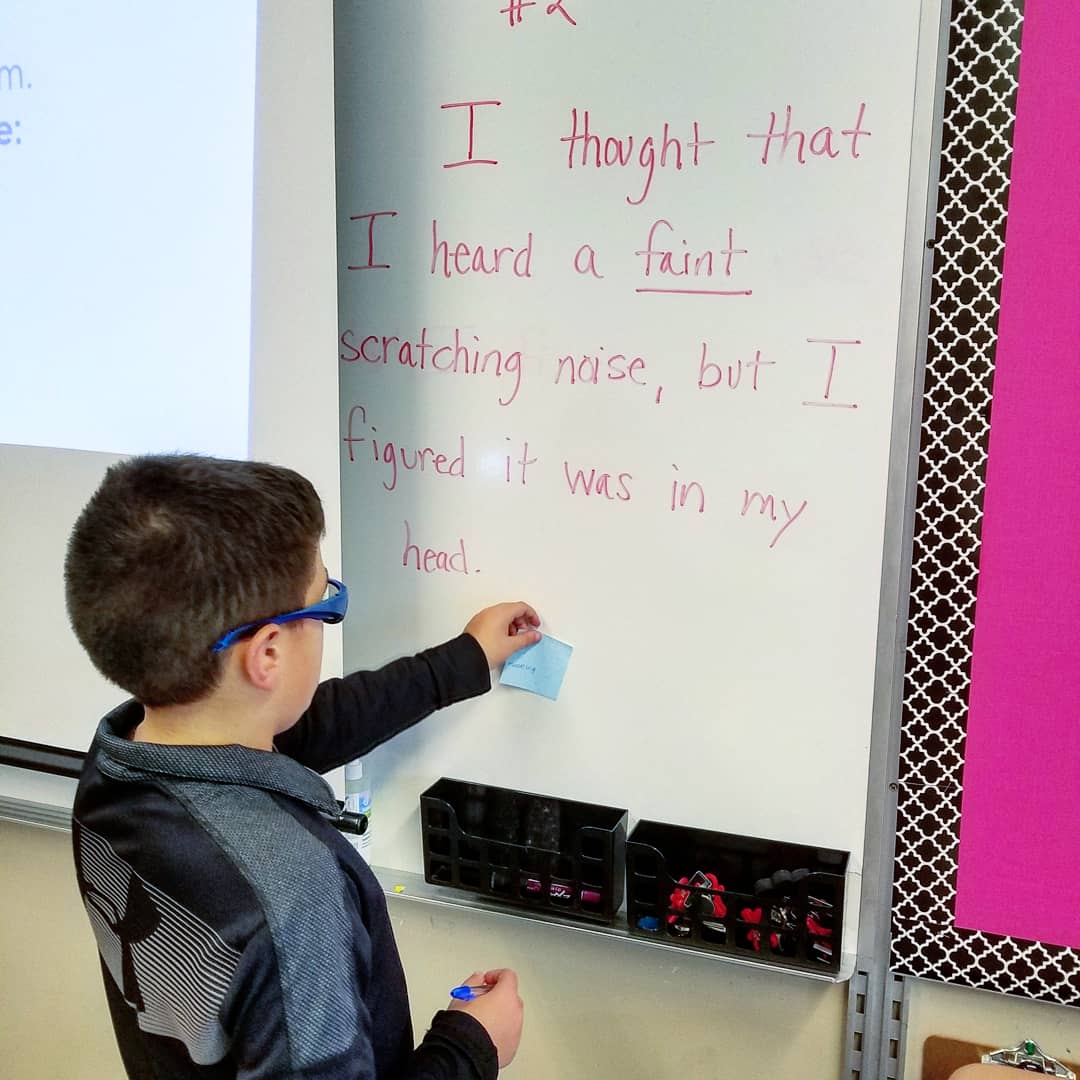 m.
e:
#2
I thought that
I heard a faint
scratching noise, but I
figured it was in my
head.